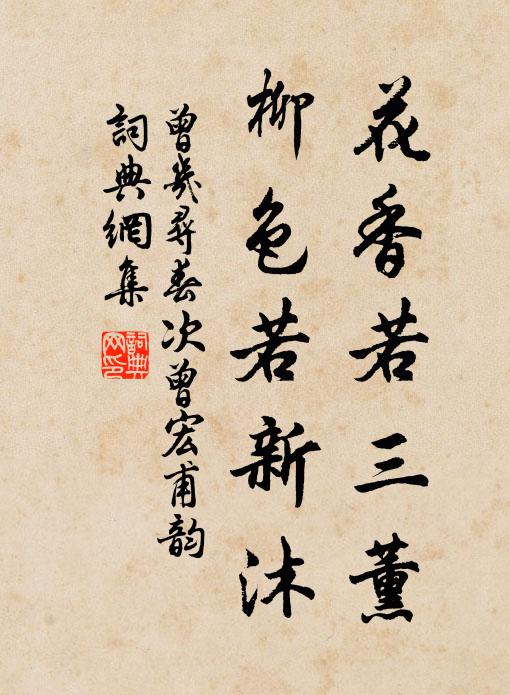 花香若三薰
柳色若新沐
曾幾尋春次曾宏甫韵
詞典網集
詞典網印